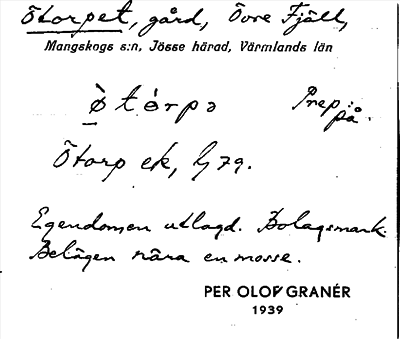 Ötorpet, gård, Övre Fjäll,
Mangskogs s:n, Jösse härad, Värmlands län
ø̀ tórpə Prep:
på.
Ötorp ek, Lj 79.
Egendomen utlagd. Bolagsmark.
Belägen nära en mosse.
PER OLOF GRANÉR
1939